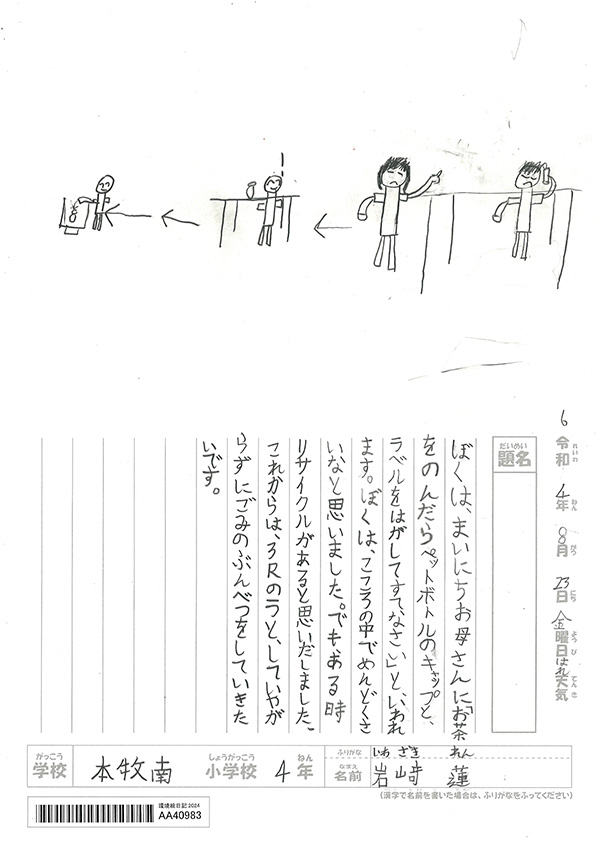 6 令和 4年 8月 23日 金曜日 はれ 天気
れいわ ねん がつ にち ようび てんき
だいめい
題名
ぼくは、まいにちお母さんに「お茶
をのんだらペットボトルのキャップと、
ラベルをはがしてすてなさい」と、いわれ
ます。ぼくは、こころの中でめんどくさ
いなと思いました。でも、ある時
リサイクルがあると思いだしました。
これからは、3Rのうと、していやが
らずにごみのぶんべつをしていきた
いです。
がっこう
学校
本牧南
しょうがっこう
小学校
4
ねん
年
ふりがな
いわ ざき れん
なまえ
名前
岩崎 蓮
(漢字で名前を書いた場合は、ふりがなをふってください)
環境絵日記2024
AA40983